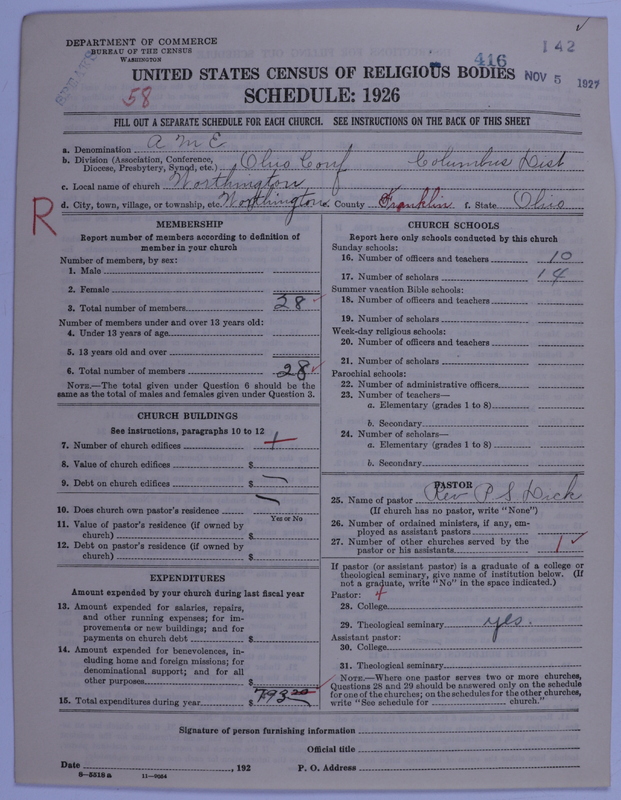 416
142
DEPARTMENT OF COMMERCE
BUREAU OF THE CENSUS
WASHINGTON
NOV 5 1927
UNITED STATES CENSUS OF RELIGIOUS BODIES
58
SCHEDULE: 1926
FILL OUT A SEPARATE SCHEDULE FOR EACH CHURCH. SEE INSTRUCTIONS ON THE BACK OF THIS SHEET
a. Denomination A M E
b. Division (Association, Conference, Diocese, Presbytery, Synod, etc.) Ohio Conf Columbus Dist
c. Local name of church Worthington
d. City, town, village, or township, etc. Worthington e. County Franklin f. State Ohio
R
MEMBERSHIP
Report number of members according to definition of
member in your church
Number of members, by sex:
1. Male
2. Female
3. Total number of members 28
Number of members under and over 13 years old:
4. Under 13 years of age
5. 13 years old and over
6. Total number of members 28
NOTE.—The total given under Question 6 should be the
same as the total of males and females given under Question 3.
CHURCH BUILDINGS
See instructions, paragraphs 10 to 12
7. Number of church edifices 1
8. Value of church edifices $
9. Debt on church edifices $
10. Does church own pastor's residence
Yes or No
11. Value of pastor's residence (if owned by
church) $
12. Debt on pastor's residence (if owned by
church) $
EXPENDITURES
Amount expended by your church during last fiscal year
13. Amount expended for salaries, repairs,
and other running expenses; for im-
provements or new buildings; and for
payments on church debt $
14. Amount expended for benevolences, in-
cluding home and foreign missions; for
denominational support; and for all
other purposes $
15. Total expenditures during year $ 793
CHURCH SCHOOLS
Report here only schools conducted by this church
Sunday schools:
16. Number of officers and teachers 10
17. Number of scholars 14
Summer vacation Bible schools:
18. Number of officers and teachers
19. Number of scholars
Week-day religious schools:
20. Number of officers and teachers
21. Number of scholars
Parochial schools:
22. Number of administrative officers
23. Number of teachers—
a. Elementary (grades 1 to 8)
b. Secondary
24. Number of scholars—
a. Elementary (grades 1 to 8)
b. Secondary
PASTOR
25. Name of pastor Rev P S Dick
(If church has no pastor, write "None")
26. Number of ordained ministers, if any, em-
ployed as assistant pastors
27. Number of other churches served by the
pastor or his assistants 1
If pastor (or assistant pastor) is a graduate of a college or
theological seminary, give name of institution below. (If
not a graduate, write "No" in the space indicated.)
Pastor: 4
28. College
29. Theological seminary yes.
Assistant pastor:
30. College
31. Theological seminary
NOTE.—Where one pastor serves two or more churches,
Questions 28 and 29 should be answered only on the schedule
for one of the churches; on the schedules for the other churches,
write "See schedule for church."
Signature of person furnishing information
Official title
Date , 192 P. O. Address
8—5518 a 11—9054